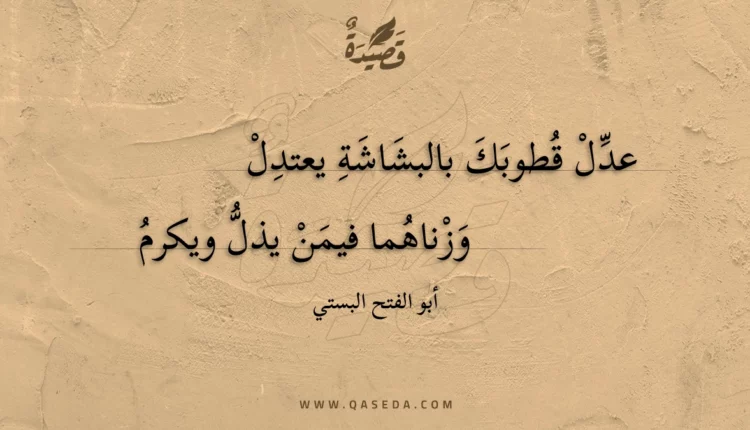 قَصِيْدَةٌ
عدِّلْ قُطوبَكَ بالبشَاشَةِ يعتدِلْ
وَزْناهُما فيمَنْ يذلُّ ويكرمُ
أبو الفتح البستي
WWW.QASEDA.COM